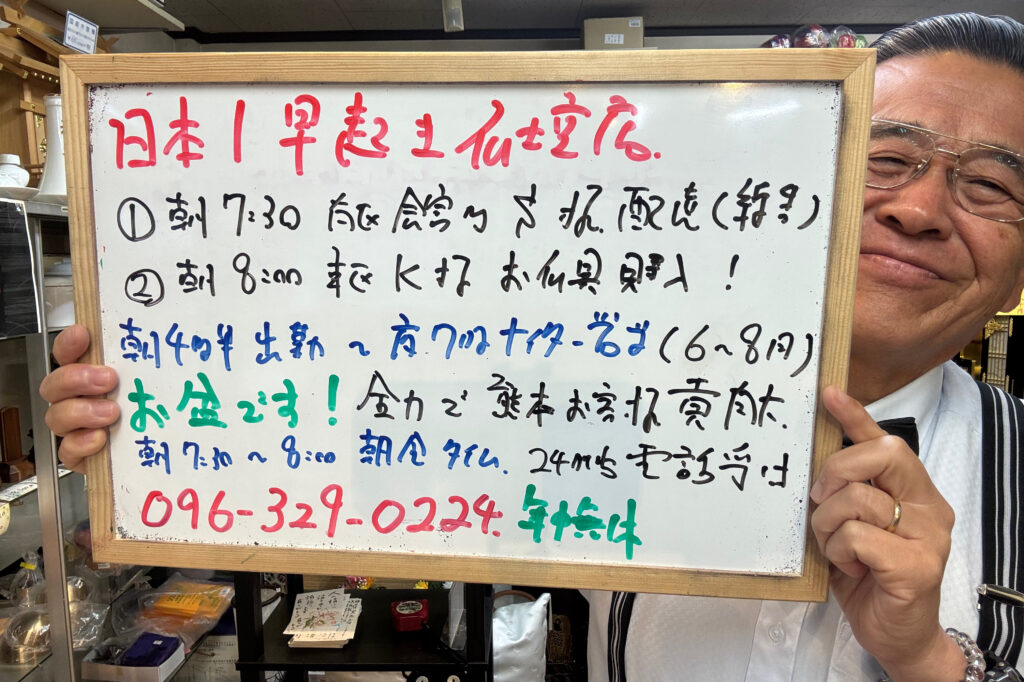 日本1早起き仏壇店.
① 朝7:30 南区 会館 配達(新盆)
② 朝8:00 東区K様 お仏具購入!
朝4時半出勤〜夜7時ナイター営業(6〜8月)
お盆です! 全力で 熊本お客様貢献
朝7:30〜8:00 朝食タイム. 24時間電話受付
096-329-0224. 年中無休